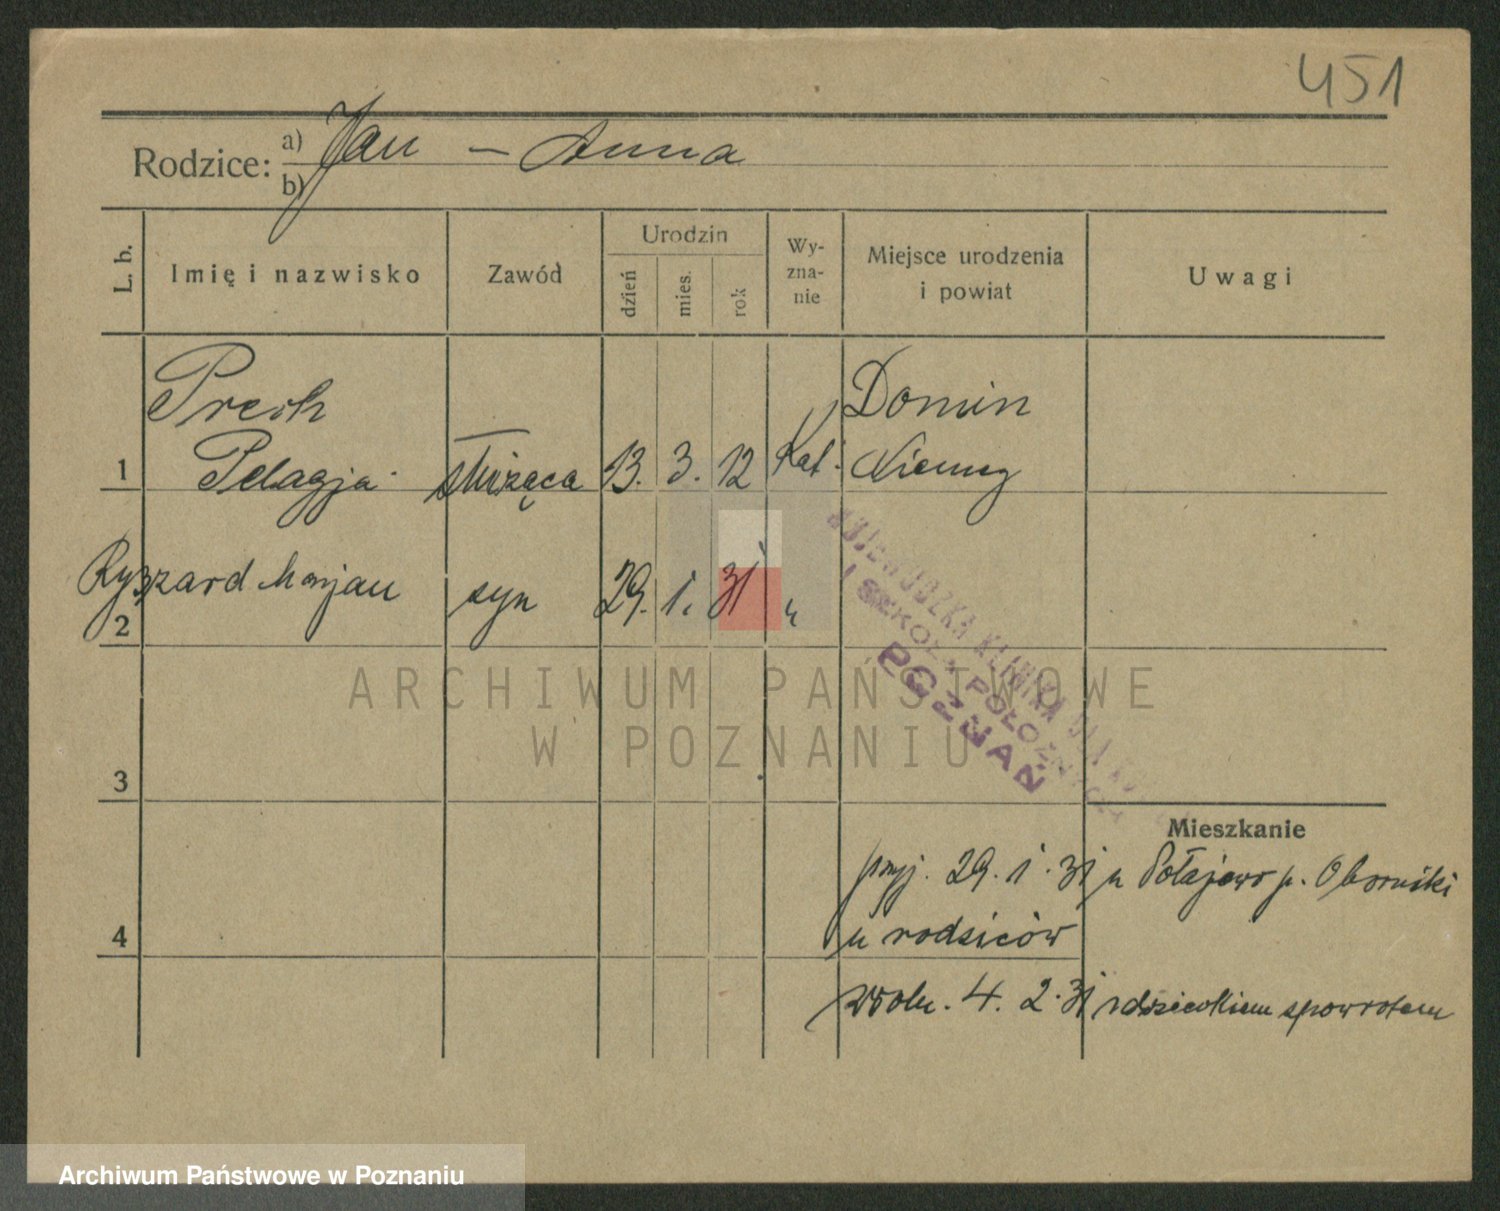 451
Rodzice: a) Jan – Anna
b)
L. b. Imię i nazwisko Zawód Urodzin dzień mies. rok Wy-zna-nie Miejsce urodzenia i powiat Uwagi
Domin
1 Pelagja służąca 13. 3. 12 Kat. Niemcy
2 Ryszard Marjan syn 29. 1. 31 "
WOJEWÓDZKA KLINIKA DLA
I SZKOŁA POŁOŻNYCH
POZNAŃ
ARCHIWUM PAŃSTWOWE
W POZNANIU
3
Mieszkanie
przyj. 29. 1. 31 z Połajewo p. Oborniki
4 u rodziców
zwoln. 4. 2. 31 z dzieckiem spowrotem
Archiwum Państwowe w Poznaniu